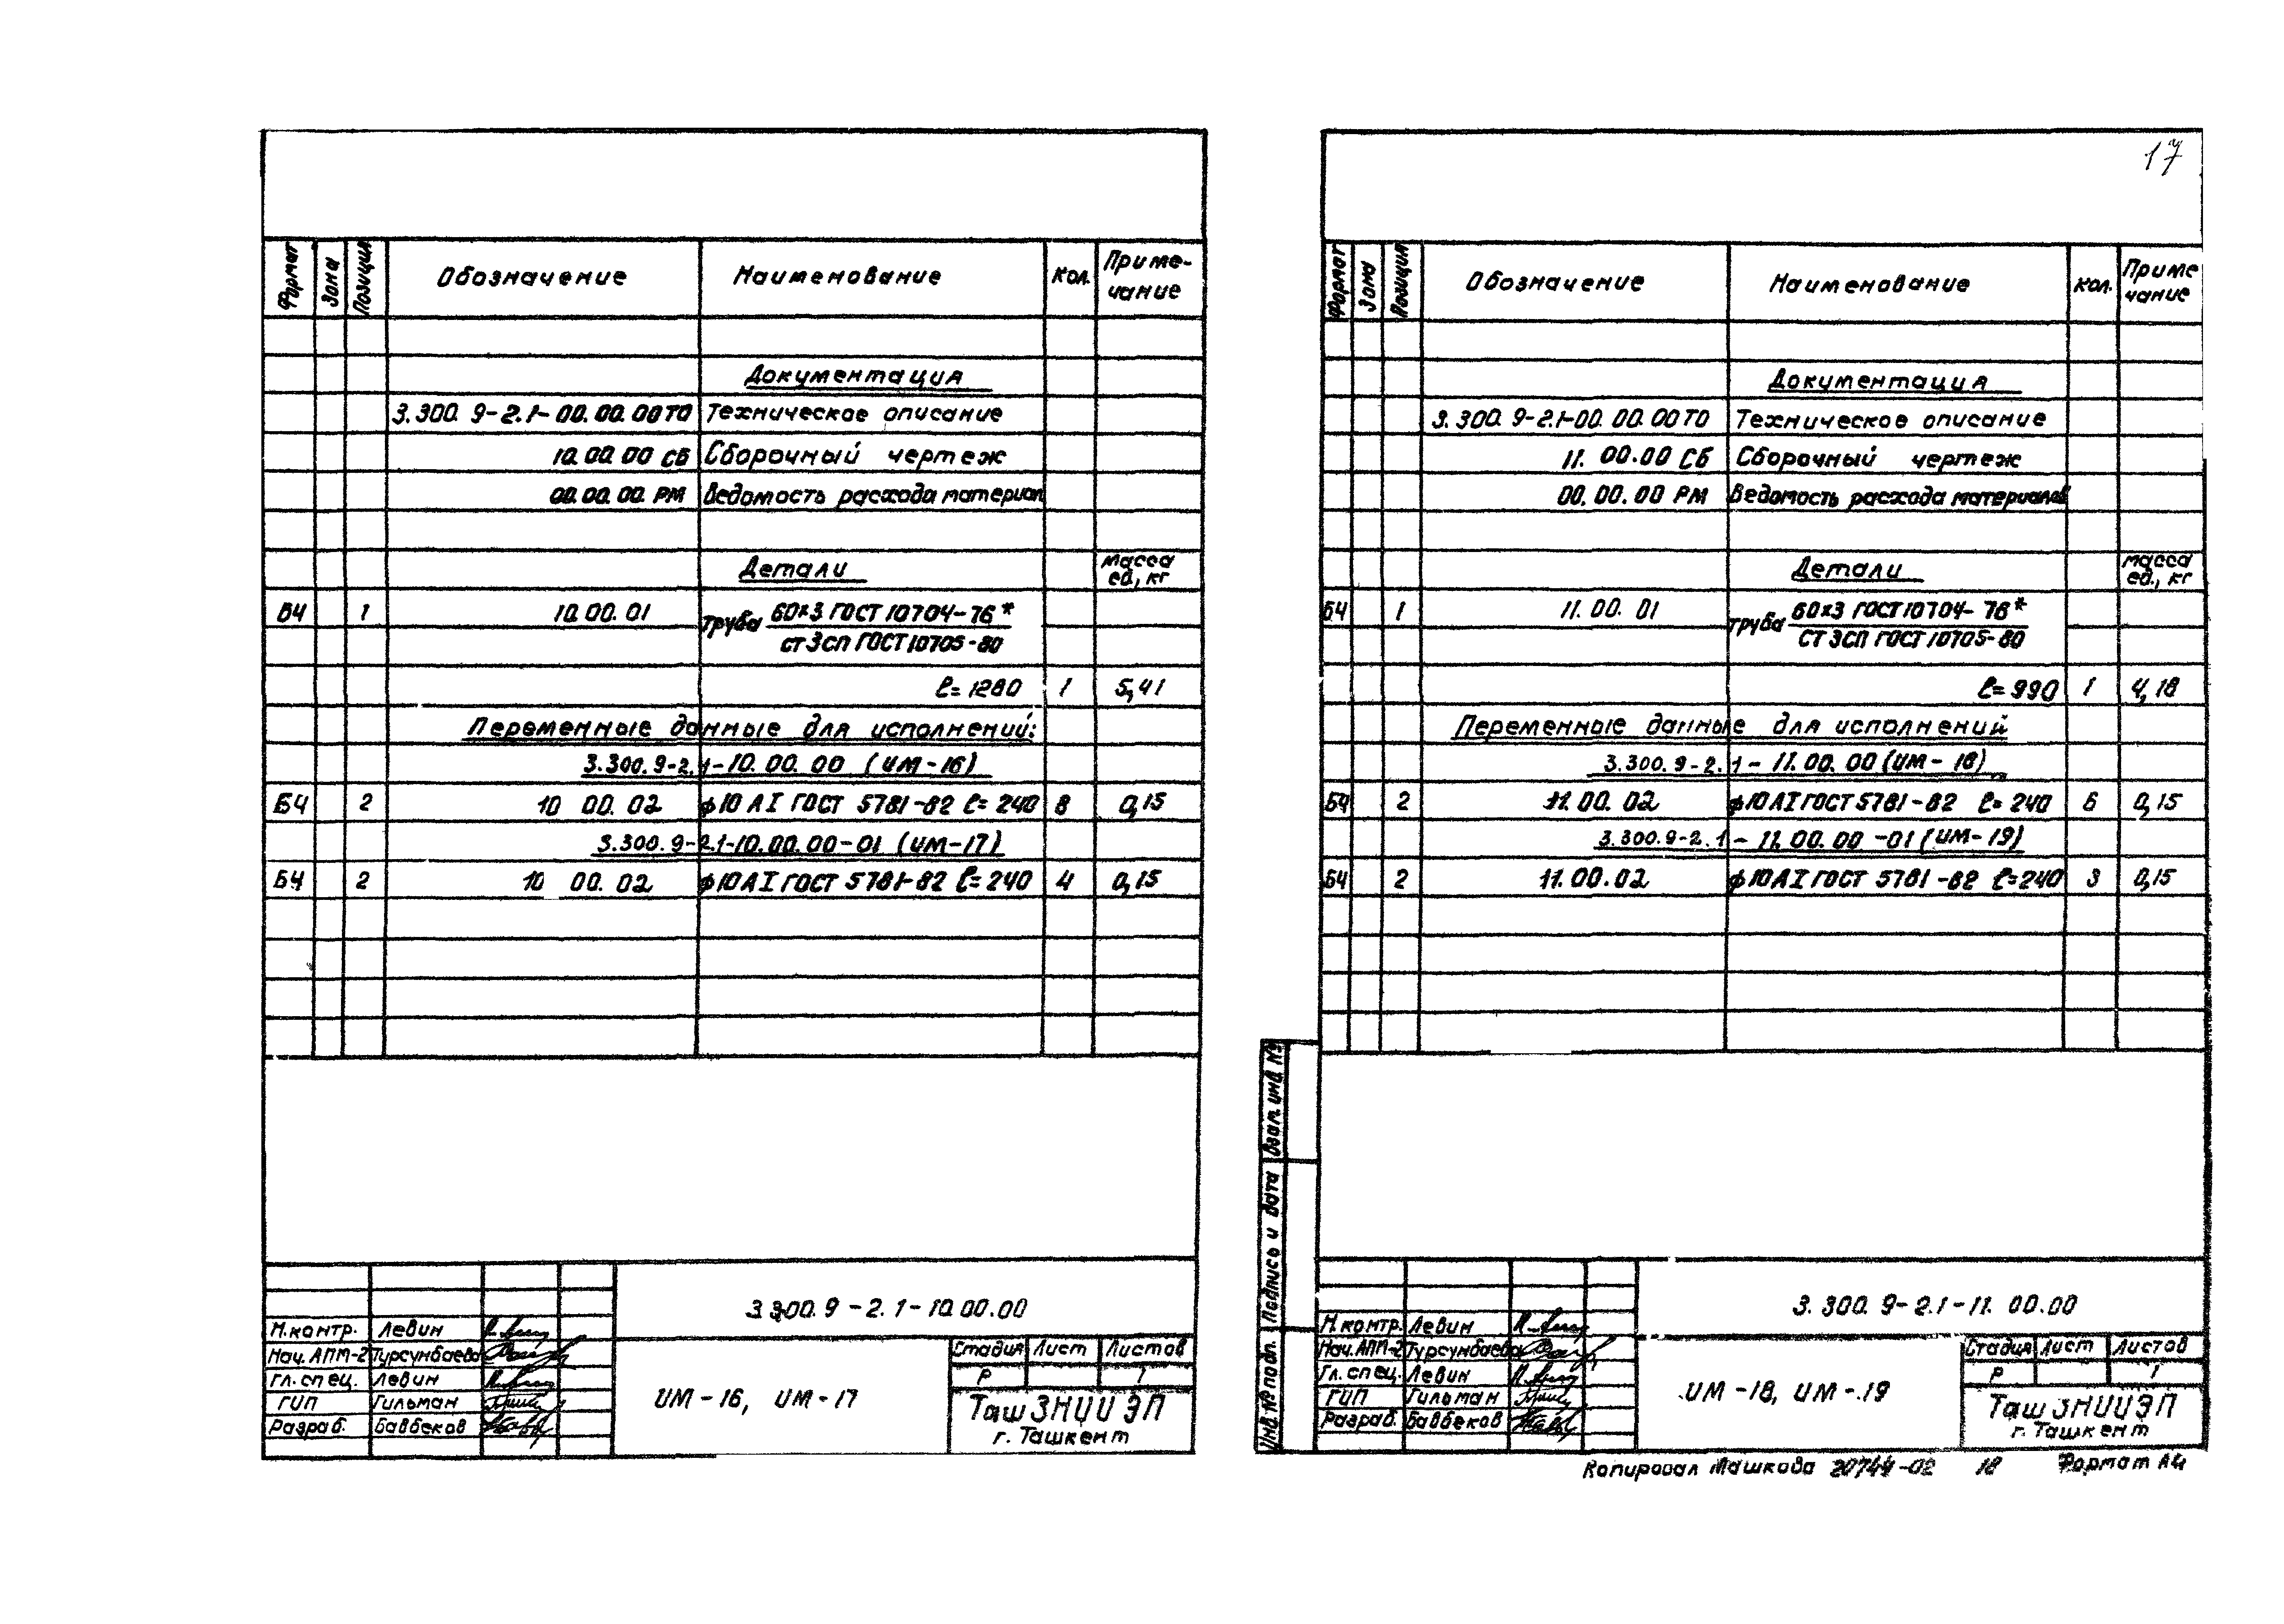 Формат Зона Позиция Обозначение Наименование Кол. Приме-
чание
Документация
3.300.9-2.1-00.00.00 ТО Техническое описание
10.00.00 СБ Сборочный чертеж
00.00.00. РМ Ведомость расхода материал
Детали масса
ед., кг
БЧ 1 10.00.01 труба 60х3 ГОСТ 10704-76*
ст 3сп ГОСТ 10705-80
ℓ= 1280 1 5,41
Переменные данные для исполнений:
3.300.9-2.1-10.00.00 (ИМ-16)
БЧ 2 10 00.02 ф10 АI ГОСТ 5781-82 ℓ= 240 8 0,15
3.300.9-2.1-10.00.00-01 (ИМ-17)
БЧ 2 10 00.02 ф10 АI ГОСТ 5781-82 ℓ= 240 4 0,15
3.300.9-2.1-10.00.00
Н.контр. Левин
Нач. АПМ-2 Турсунбаева
Гл. спец. Левин
ГИП Гильман
Разраб. Бавбеков
ИМ-16, ИМ-17
Стадия Лист Листов
Р 1
ТашЗНИИЭП
г. Ташкент
17
Формат Зона Позиция Обозначение Наименование Кол. Приме
чание
Документация
3.300.9-2.1-00.00.00 ТО Техническое описание
11.00.00 СБ Сборочный чертеж
00.00.00 РМ Ведомость расхода материалов
Детали масса
ед., кг
БЧ 1 11.00.01 труба 60х3 ГОСТ 10704-76*
СТ 3СП ГОСТ 10705-80
ℓ= 990 1 4,18
Переменные данные для исполнений
3.300.9-2.1-11.00.00 (ИМ-18)
БЧ 2 11.00.02 ф10 АI ГОСТ 5781-82 ℓ= 240 6 0,15
3.300.9-2.1-11.00.00-01 (ИМ-19)
БЧ 2 11.00.02 ф10 АI ГОСТ 5781-82 ℓ=240 3 0,15
Взам. инв. №
Подпись и дата
Инв. № подл.
3.300.9-2.1-11.00.00
Н.контр. Левин
Нач. АПМ-2 Турсунбаева
Гл. спец. Левин
ГИП Гильман
Разраб. Бавбеков
ИМ-18, ИМ-19
Стадия Лист Листов
Р 1
ТашЗНИИЭП
г. Ташкент
Копировал Машкова 20744-02 18 Формат А4